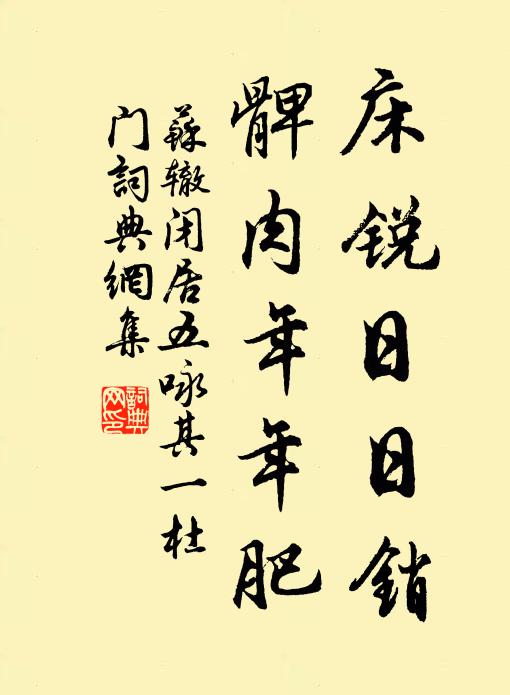 床锐日日销
髀肉年年肥
蘇辙闭居五咏其一杜
门詞典網集
詞典网印